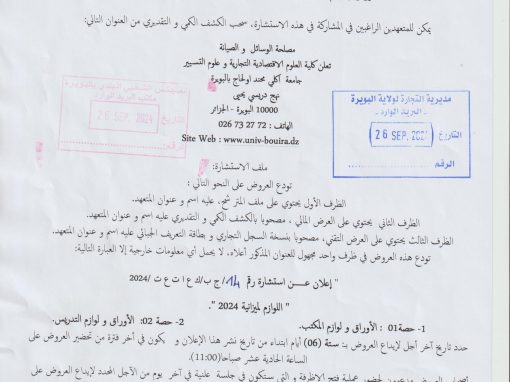 يمكن للمتعهدين الراغبين في المشاركة في هذه الاستشارة، سحب الكشف الكمي و التقديري من العنوان التالي:
مصلحة الوسائل و الصيانة
تعلن كلية العلوم الاقتصادية التجارية و علوم التسيير
جامعة آكلي محند اولحاج بالبويرة
نهج دريسي يحيى
10000 البويرة - الجزائر
الهاتف : 72 27 73 026
Site Web : www.univ-bouira.dz
مكتب البريد الوارد
26 SEP. 2024
التاريخ
رقمه
مديرية التجارة لولاية البويرة
- البريد الوارد -
التاريخ 26 SEP. 202
الرقم
ملف الاستشارة:
تودع العروض على النحو التالي :
الظرف الأول يحتوي على ملف المترشح، عليه اسم و عنوان المتعهد.
الظرف الثاني يحتوي على العرض المالي ، مصحوبا بالكشف الكمي و التقديري عليه اسم و عنوان المتعهد.
الظرف الثالث يحتوي على العرض التقني، مصحوبا بنسخة السجل التجاري و بطاقة التعريف الجبائي عليه اسم و عنوان المتعهد.
تودع هذه العروض في ظرف واحد مجهول للعنوان المذكور أعلاه، لا يحمل أي معلومات خارجية إلا العبارة التالية:
" إعلان عـــن استشارة رقم 14/ ج ب/ ك ع ا ت ع ت /2024
" اللوازم لميزانية 2024 ".
1- حصة01: الأوراق و لوازم المكتب. 2- حصة 02: الأوراق و لوازم التدريس.
حدد تاريخ آخر أجل لإيداع العروض بـ: ستة (06) أيام ابتداء من تاريخ نشر هذا الإعلان و يكون في آخر فترة من تحضير العروض على
الساعة الحادية عشر صباحا(11:00).
لحضور عملية فتح الاظرفة و التي ستكون في جلسة علنية في آخر يوم من الآجل المحدد لإيداع العروض على